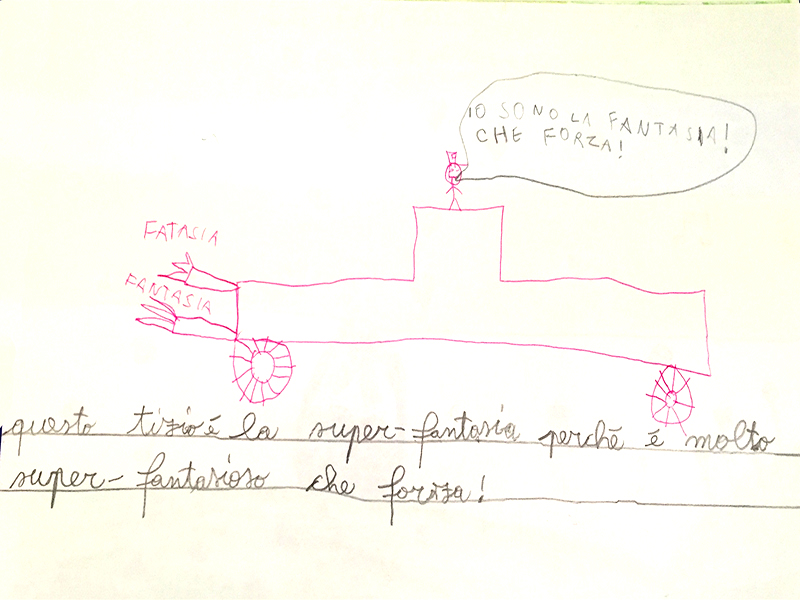 IO SONO LA FANTASIA!
CHE FORZA!
FATASIA
FANTASIA
questo tizio é la super-fantasia perché é molto
super-fantasioso che forza!